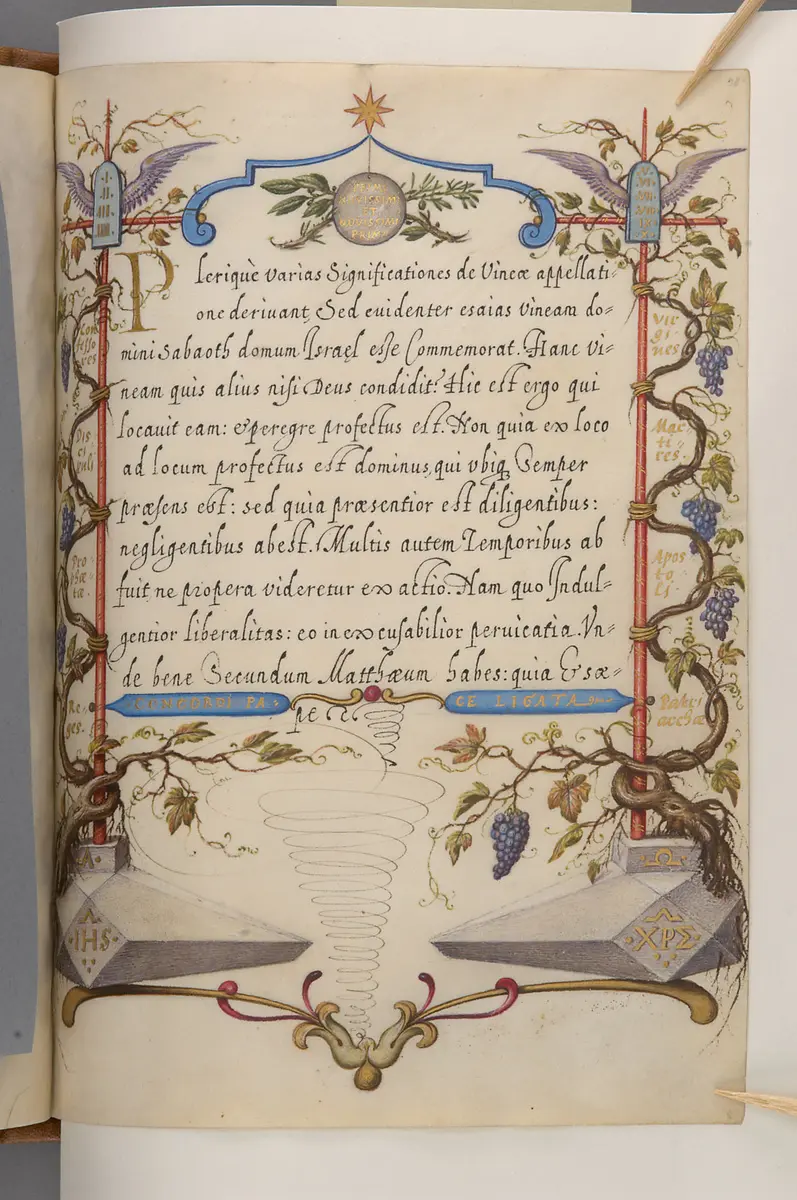 I.
II.
III.
IIII.
V.
VI.
VII.
VIII.
IX.
X.
PRIM9
NOVISSIM9
ET
NOVISSIM9
PRIM9
Plerique varias Significationes de Vineæ appellati=
one deriuant, Sed euidenter esaias vineam do=
mini Sabaoth domum Israęl esse Commemorat. Hanc vi=
neam quis alius nisi Deus condidit? Hic est ergo qui
locauit eam: & peregre profectus est. Non quia ex loco
ad locum profectus est dominus, qui vbiq Semper
præsens est: sed quia præsentior est diligentibus:
negligentibus abest. Multis autem Temporibus ab
fuit, ne propera videretur exactio. Nam quo Indul=
gentior liberalitas: eo inexcusabilior peruicatia. Vn=
de bene Secundum Matthæum habes: quia & sæ=
pe
Con
fesso
res
Dis
ci
puli
Pro
phæ
tæ.
Re=
ges.
Vir
gi
nes
Mar
ti=
res.
Apos
to
li.
Patri
archæ
CONCORDI PA=
CE LIGATA
A
Ω
IHS
XPΣ